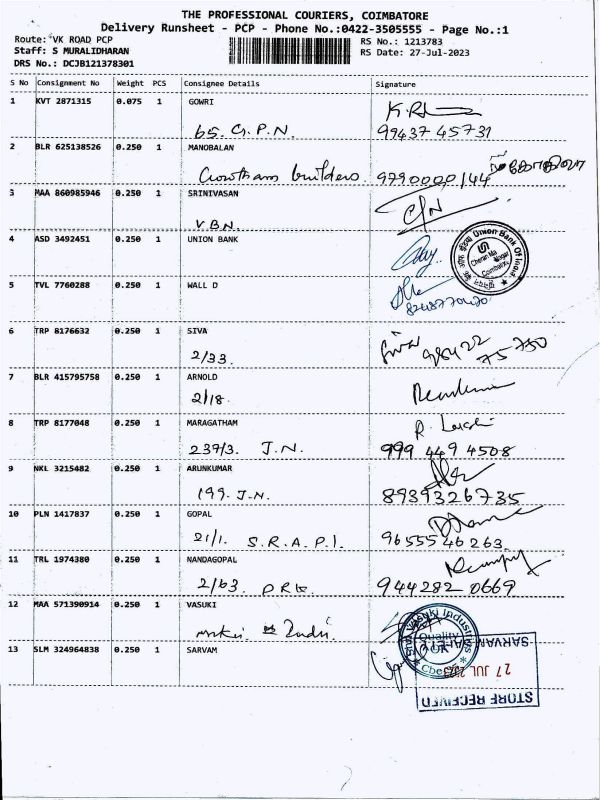 THE PROFESSIONAL COURIERS, COIMBATORE
Delivery Runsheet - PCP - Phone No.:0422-3505555 - Page No.:1
Route: VK ROAD PCP
RS No.: 1213783
Staff: S MURALIDHARAN
RS Date: 27-Jul-2023
DRS No.: DCJB121378301
S No Consignment No Weight PCS Consignee Details Signature
1 KVT 2871315 0.075 1 GOWRI
65. G.P.N. 99437 45731
2 BLR 625138526 0.250 1 MANOBALAN
Gowtham builders. 9790000144
3 MAA 860985946 0.250 1 SRINIVASAN
V.B.N.
4 ASD 3492451 0.250 1 UNION BANK
Union Bank Of India
5 TVL 7760288 0.250 1 WALL D
6 TRP 8176632 0.250 1 SIVA
2/33. 98422 75750
7 BLR 415795758 0.250 1 ARNOLD
2/18.
8 TRP 8177048 0.250 1 MARAGATHAM
239/3. J.N. 999 449 4508
9 NKL 3215482 0.250 1 ARUNKUMAR
199. J.N. 8939326735
10 PLN 1417837 0.250 1 GOPAL
21/1. S.R.A.P.1. 96555 46263.
11 TRL 1974380 0.250 1 NANDAGOPAL
2/63. 944282 0669
12 MAA 571390914 0.250 1 VASUKI
Vasuki Industries
Quality
13 SLM 324964838 0.250 1 SARVAM
SARVAM
27 JUL 2023
STORE RECEIVED